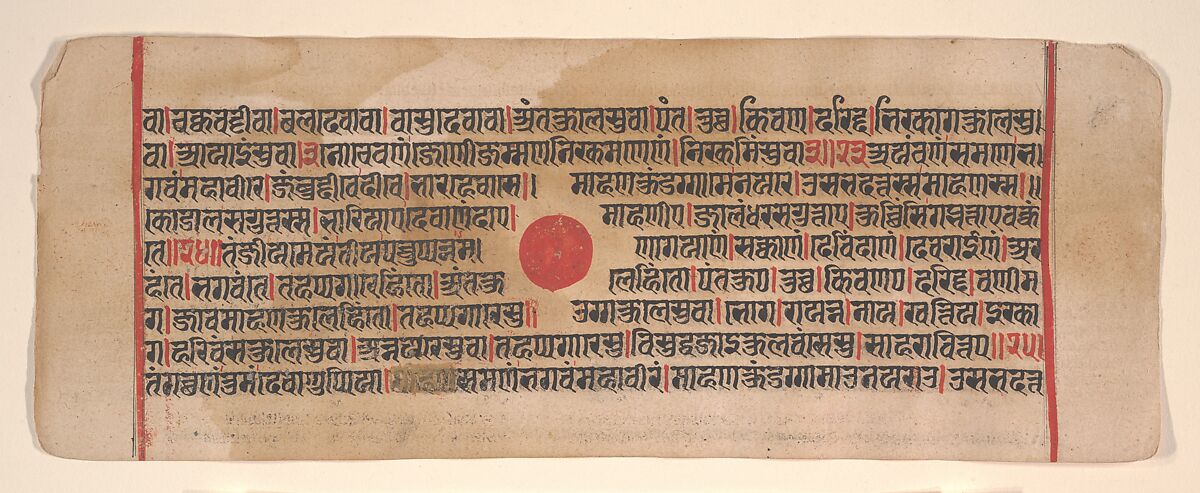 वा।चक्कवट्टीवा।बलदेवावा।वासुदेवावा।अंतकुलेसुवा।पंत।तुच्छ।किवण।दरिद्द।भिरकागकुलेसु।
वा।आयाइंसुवा।३नोचेवणंजोणीजम्मणनिरकमणेणं।निरकमिंसुवा३॥२३अयंचणंसमणेभ
गवंमहावीरे।जंबुद्दीवेदीवे।भारहेवासे।। माहणकुंडग्गामेनयरे।उसभदत्तस्समाहणस्स।॥
कोडालसगुत्तस्स।भारियाएदेवाणंदाए। माहणीए।जालंधरसगुत्ताए।कुच्छिंसिगब्भत्ताएवक्कं
ते॥२४॥तंजीयमेयंतीयपच्चुप्पन्नम। णागयाणं।सक्काणं।देविंदाणं।देवराईणं।अर
हंते।भगवंते।तहप्पगारेहिंतो।अंतकु लेहिंतो।पंतकुए।तुच्छ।किवणए।दरिद्द।वणीम
ग।जावमाहणकुलेहिंतो।तहप्पगारेसु॥ उग्गकुलेसुवा।भोग।रायन्न।नाय।खत्तिय।इरका
ग।हरिवंसकुलेसुवा।अन्नयरेसुवा।तहप्पगारेसु।विसुद्धजाइकुलवंसेसु।साहरावित्तए॥२५।
तंगच्छणंतुमंदेवाणुप्पिया।समणंभगवंमहावीरं।माहणकुंडग्गामाउनयराउ।उसभदत्त